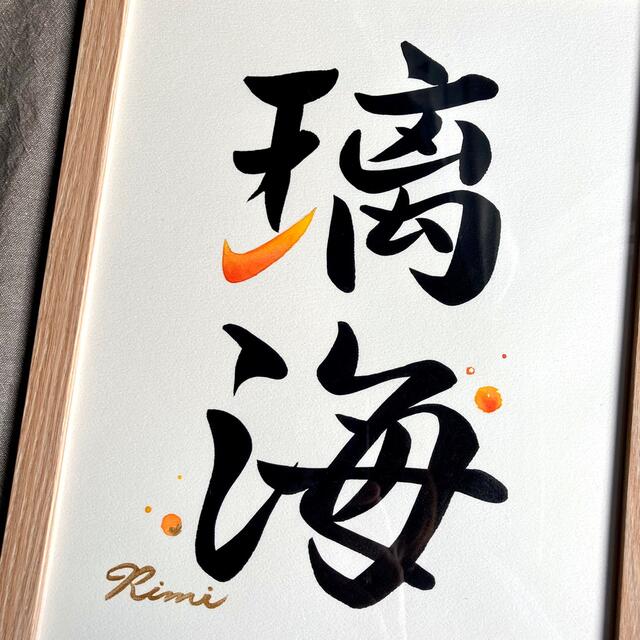 璃海
Rimi